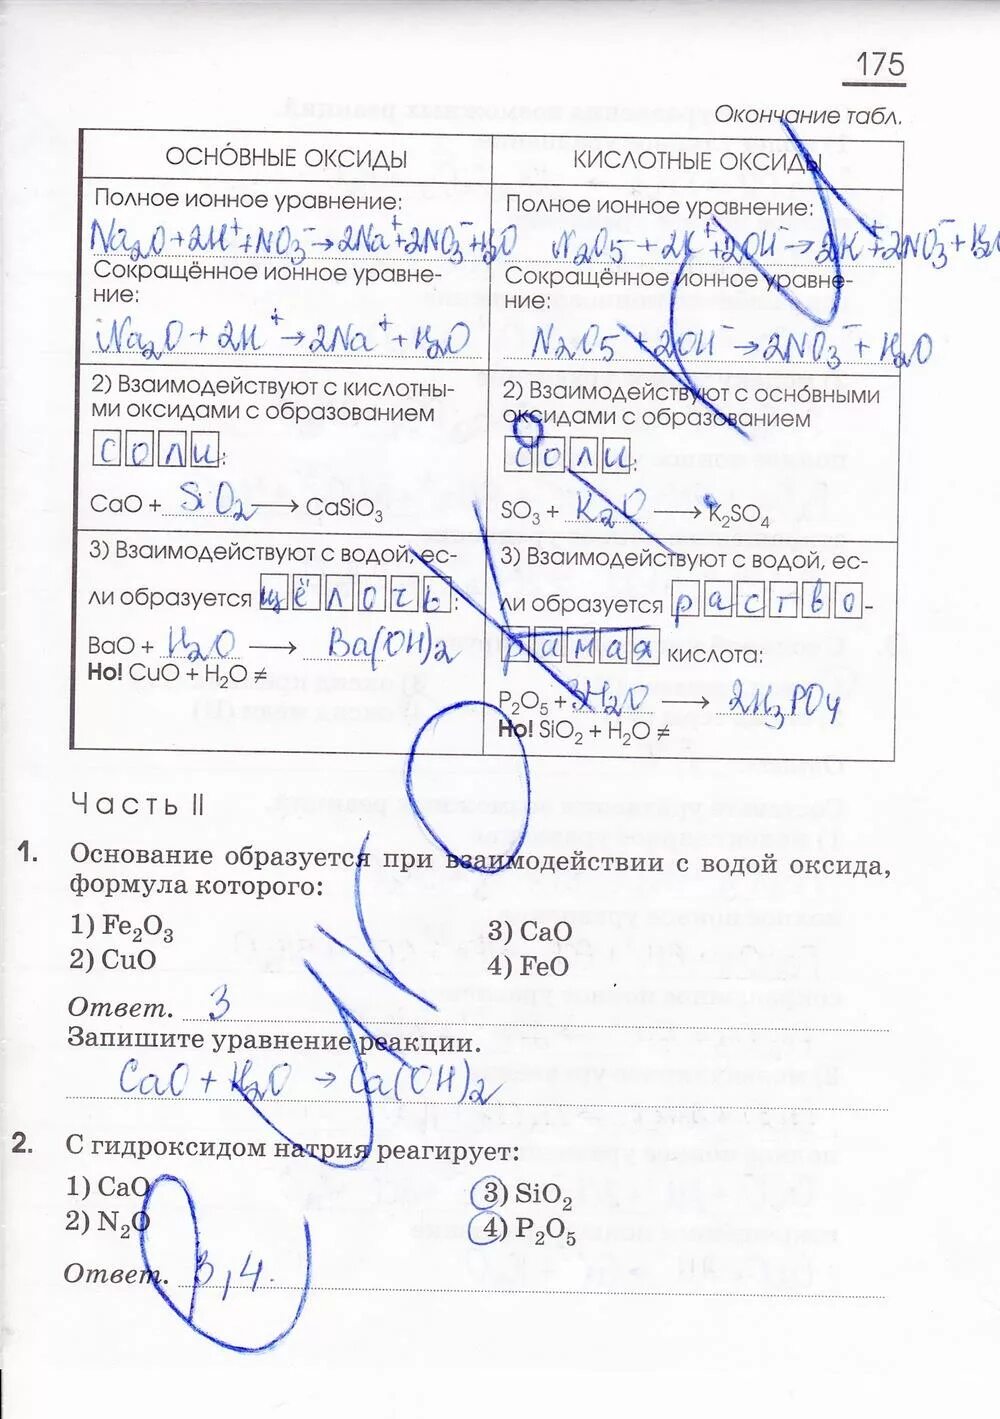 175
Окончание табл.
ОСНО́ВНЫЕ ОКСИДЫ
КИСЛОТНЫЕ ОКСИДЫ
Полное ионное уравнение:
Na₂O + 2H⁺ + NO₃⁻ → 2Na⁺ + 2NO₃⁻ + H₂O
Сокращённое ионное уравне-
ние:
Na₂O + 2H⁺ → 2Na⁺ + H₂O
Полное ионное уравнение:
N₂O₅ + 2K⁺ + 2OH⁻ → 2K⁺ + 2NO₃⁻ + H₂O
Сокращённое ионное уравне-
ние:
N₂O₅ + 2OH⁻ → 2NO₃⁻ + H₂O
2) Взаимодействуют с кислотны-
ми оксидами с образованием
соли:
CaO + SiO₂ ⟶ CaSiO₃
2) Взаимодействуют с осно́вными
оксидами с образованием
соли:
SO₃ + K₂O ⟶ K₂SO₄
3) Взаимодействуют с водой, ес-
ли образуется щёлочь:
BaO + H₂O ⟶ Ba(OH)₂
Но! CuO + H₂O ≠
3) Взаимодействуют с водой, ес-
ли образуется раство-
римая кислота:
P₂O₅ + 3H₂O ⟶ 2H₃PO₄
Но! SiO₂ + H₂O ≠
Часть II
1. Основание образуется при взаимодействии с водой оксида,
формула которого:
1) Fe₂O₃
2) CuO
3) CaO
4) FeO
Ответ. 3
Запишите уравнение реакции.
CaO + H₂O → Ca(OH)₂
2. С гидроксидом натрия реагирует:
1) CaO
2) N₂O
3) SiO₂
4) P₂O₅
Ответ. 3,4.